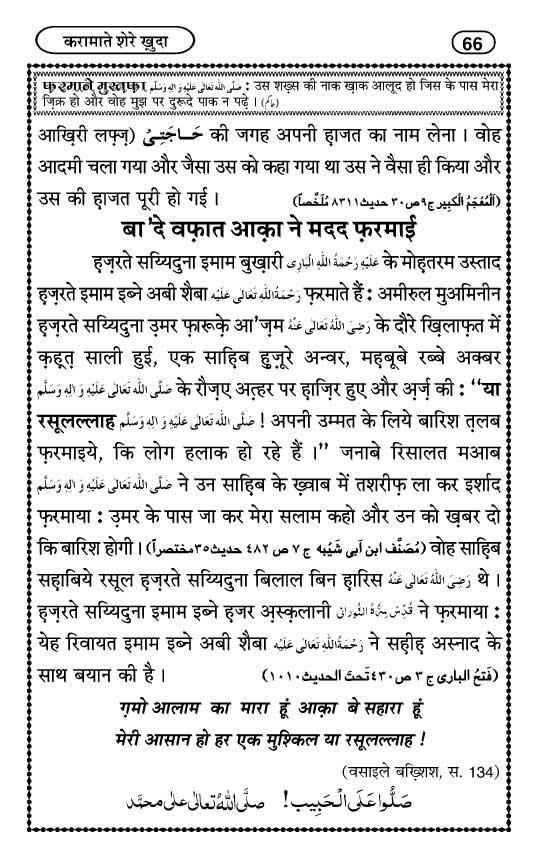 करामाते शेरे ख़ुदा
66
फ़रमाने मुस्त़फ़ा صَلَّى اللهُ تَعَالٰى عَلَيْهِ وَ اٰلِهٖ وَسَلَّم : उस शख़्स की नाक ख़ाक आलूद हो जिस के पास मेरा
ज़िक्र हो और वोह मुझ पर दुरूदे पाक न पढ़े । (حاکم)
आख़िरी लफ़्ज़) حَاجَتِیْ की जगह अपनी ह़ाजत का नाम लेना । वोह
आदमी चला गया और जैसा उस को कहा गया था उस ने वैसा ही किया और
उस की ह़ाजत पूरी हो गई । (اَلْمُعْجَمُ الْكبِير ج٩ص٣٠ حديث٨٣١١ مُلَخَّصاً)
बा'दे वफ़ात आक़ा ने मदद फ़रमाई
ह़ज़रते सय्यिदुना इमाम बुख़ारी عَلَيْهِ رَحْمَةُ اللهِ الْبَارِی के मोहतरम उस्ताद
ह़ज़रते इमाम इब्ने अबी शैबा رَحْمَةُاللهِ تَعَالٰى عَلَيْه फ़रमाते हैं : अमीरुल मुअमिनीन
ह़ज़रते सय्यिदुना उ़मर फ़ारूक़े आ'ज़म رَضِیَ اللهُ تَعَالٰى عَنْهُ के दौरे ख़िलाफ़त में
क़ह़त़ साली हुई, एक साह़िब हुज़ूरे अन्वर, मह़बूबे रब्बे अक्बर
صَلَّى اللهُ تَعَالٰى عَلَيْهِ وَ اٰلِهٖ وَسَلَّم के रौज़ए अत़्हर पर ह़ाज़िर हुए और अ़र्ज़ की : “या
रसूलल्लाह صَلَّى اللهُ تَعَالٰى عَلَيْهِ وَ اٰلِهٖ وَسَلَّم ! अपनी उम्मत के लिये बारिश त़लब
फ़रमाइये, कि लोग हलाक हो रहे हैं ।” जनाबे रिसालत मआब
صَلَّى اللهُ تَعَالٰى عَلَيْهِ وَ اٰلِهٖ وَسَلَّم ने उन साह़िब के ख़्वाब में तशरीफ़ ला कर इर्शाद
फ़रमाया : उ़मर के पास जा कर मेरा सलाम कहो और उन को ख़बर दो
कि बारिश होगी । (مُصَنَّف ابن اَبی شَيْبه ج٧ ص٤٨٢ حديث٣٥مختصراً) वोह साह़िब
सह़ाबिये रसूल ह़ज़रते सय्यिदुना बिलाल बिन ह़ारिस رَضِیَ اللهُ تَعَالٰى عَنْهُ थे ।
ह़ज़रते सय्यिदुना इमाम इब्ने ह़जर अ़स्क़लानी قُدِّسَ سِرُّهُ النُّوْرَانِی ने फ़रमाया :
येह रिवायत इमाम इब्ने अबी शैबा رَحْمَةُاللهِ تَعَالٰى عَلَيْه ने सह़ीह़ अस्नाद के
साथ बयान की है । (فَتحُ الباری ج٣ ص٤٣٠ تَحتَ الحديث١٠١٠)
ग़मो आलाम का मारा हूं आक़ा बे सहारा हूं
मेरी आसान हो हर एक मुश्किल या रसूलल्लाह !
(वसाइले बख़्शिश, स. 134)
صَلُّوا عَلَى الْحَبِيب! صلَّى اللهُ تعالٰى على محمَّد